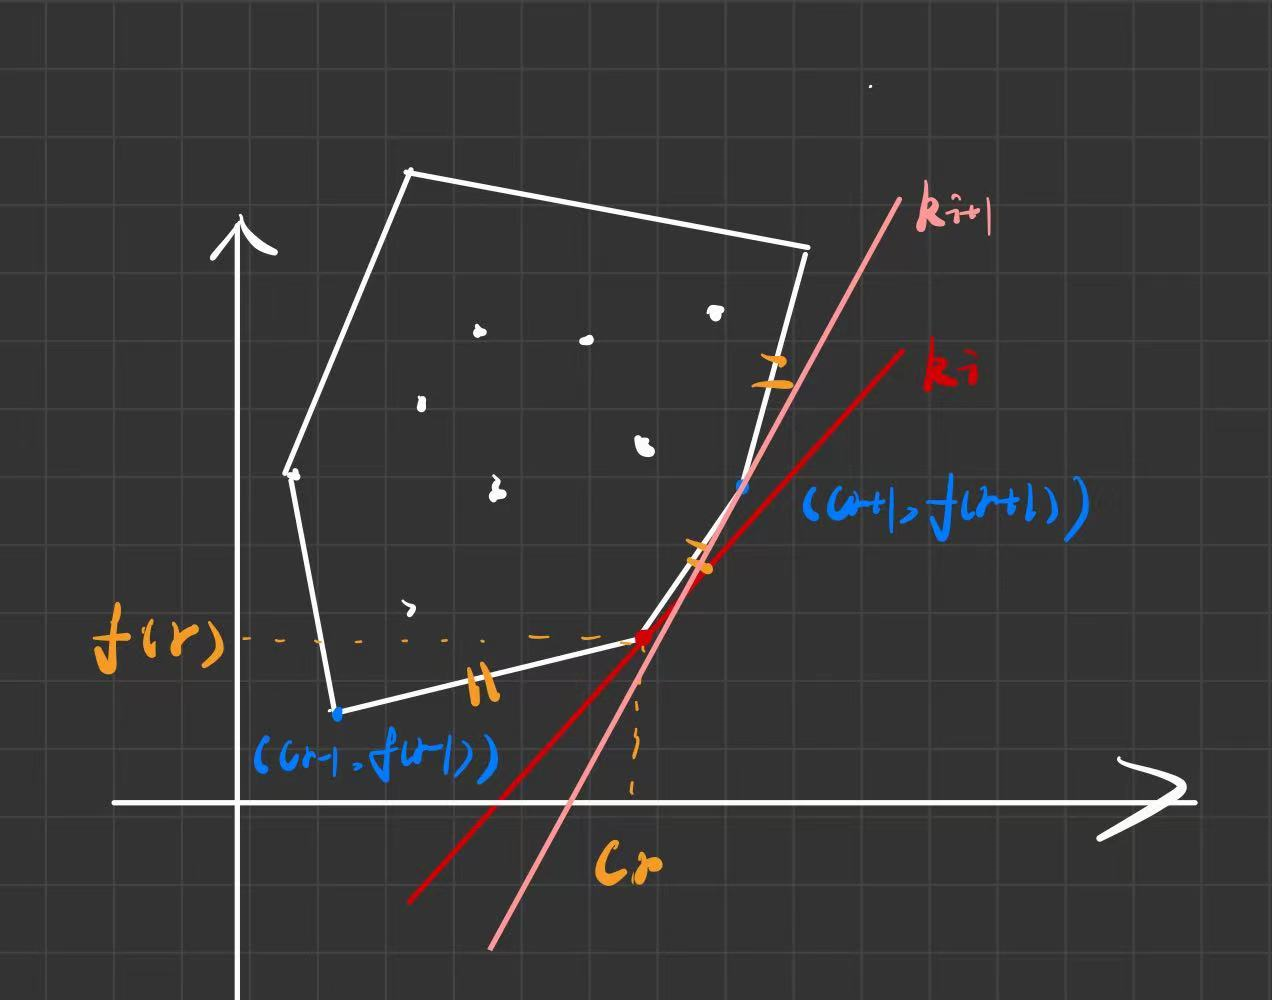 k_{i+1}
k_i
(C_{r+1}, f(r+1))
f(r)
(C_{r-1}, f(r-1))
C_r